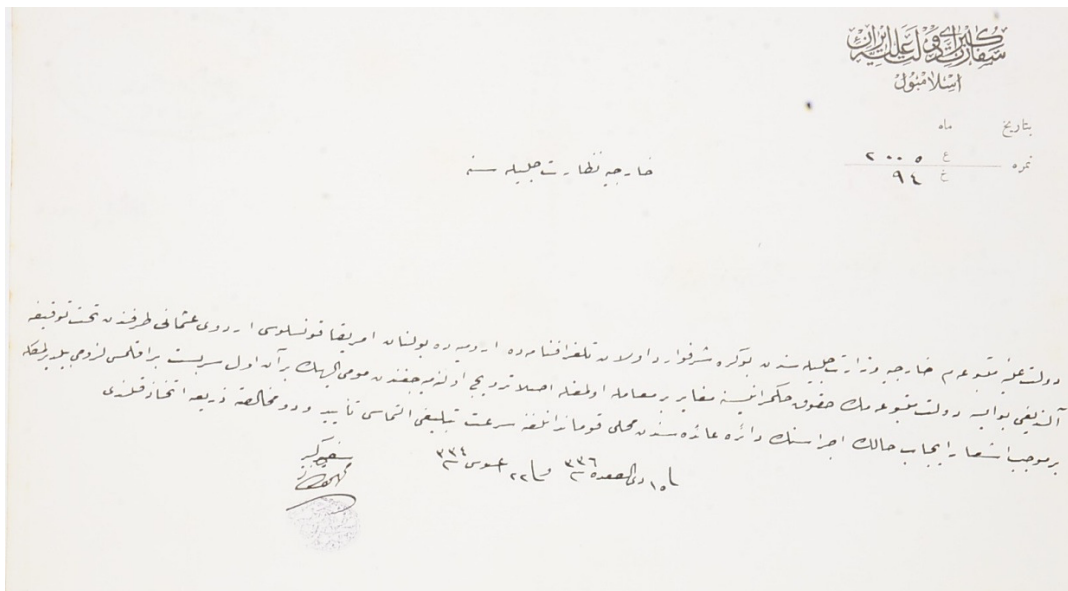 سفارت کبرای دولت علیه ایران
اسلامبول
بتاریخ ماه
نمره ع ٢٠٠٥
خ ٩٤
خارجیه نظارت جلیله سنه
دولت علیه متبوعه م خارجیه وزارت جلیله سندن بوکره شرفوارد اولان تلغرافنامه ده ارومیه ده بولنان امریقا قونسلوسی اردوی عثمانی طرفندن تحت توقیفه
آلندیغی بو ایسه دولت متبوعه مك حقوق حکمرانیسنه مغایر بر معامله اولمغله اصلا ترویج اولنه میه جغندن مومی الیهك بر آن اول سربست براقلمسی لزومی بیلدیرلمكله
بر موجب اشعار ایجاب حالك اجراسنك دائره عائده سندن محلی قوماندانلغنه سرعت تبلیغی التماسی تأیید ودو مخالصته ذریعه اتخاذ قلندی
١٥ ذی القعده سنه ٣٣٦ و ٢٢ اغستوس سنه ٣٣٤
سفیر کبیر